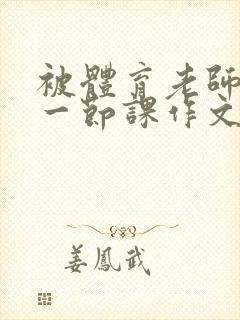 被體育老師
一節課作文
姜鳳武